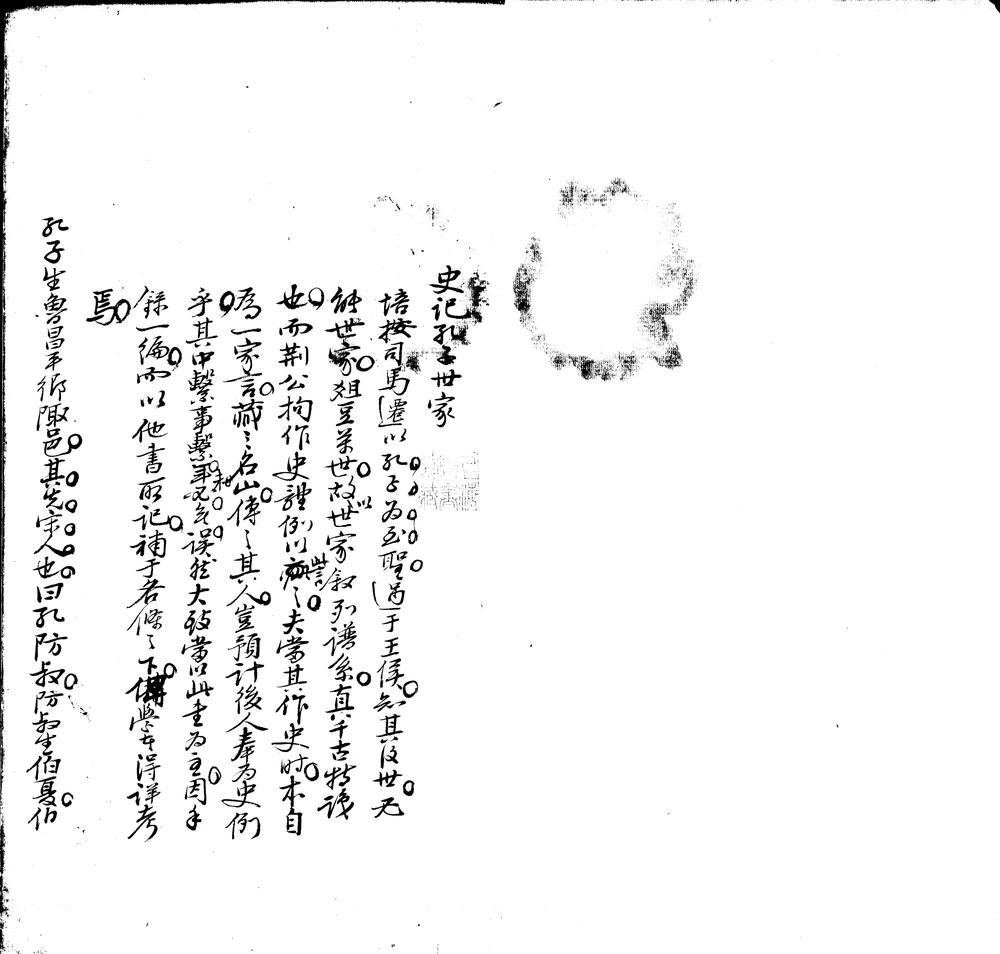 史记孔子世家
培按司馬遷以孔子为至聖过于王侯知其後世无
能世家俎豆萃世故以世家叙列谱系真千古特識
也而荆公拘作史體例以訾之夫當其作史时本自
為一家言藏之名山傳之其人豈預計後人奉为史例
乎其中繫事繫年不无误然大致當以此書为主因手
録一編而以他書所记補于各條之下学者得详考
焉
孔子生魯昌平鄉陬邑其先宋人也曰孔防叔防叔生伯夏伯